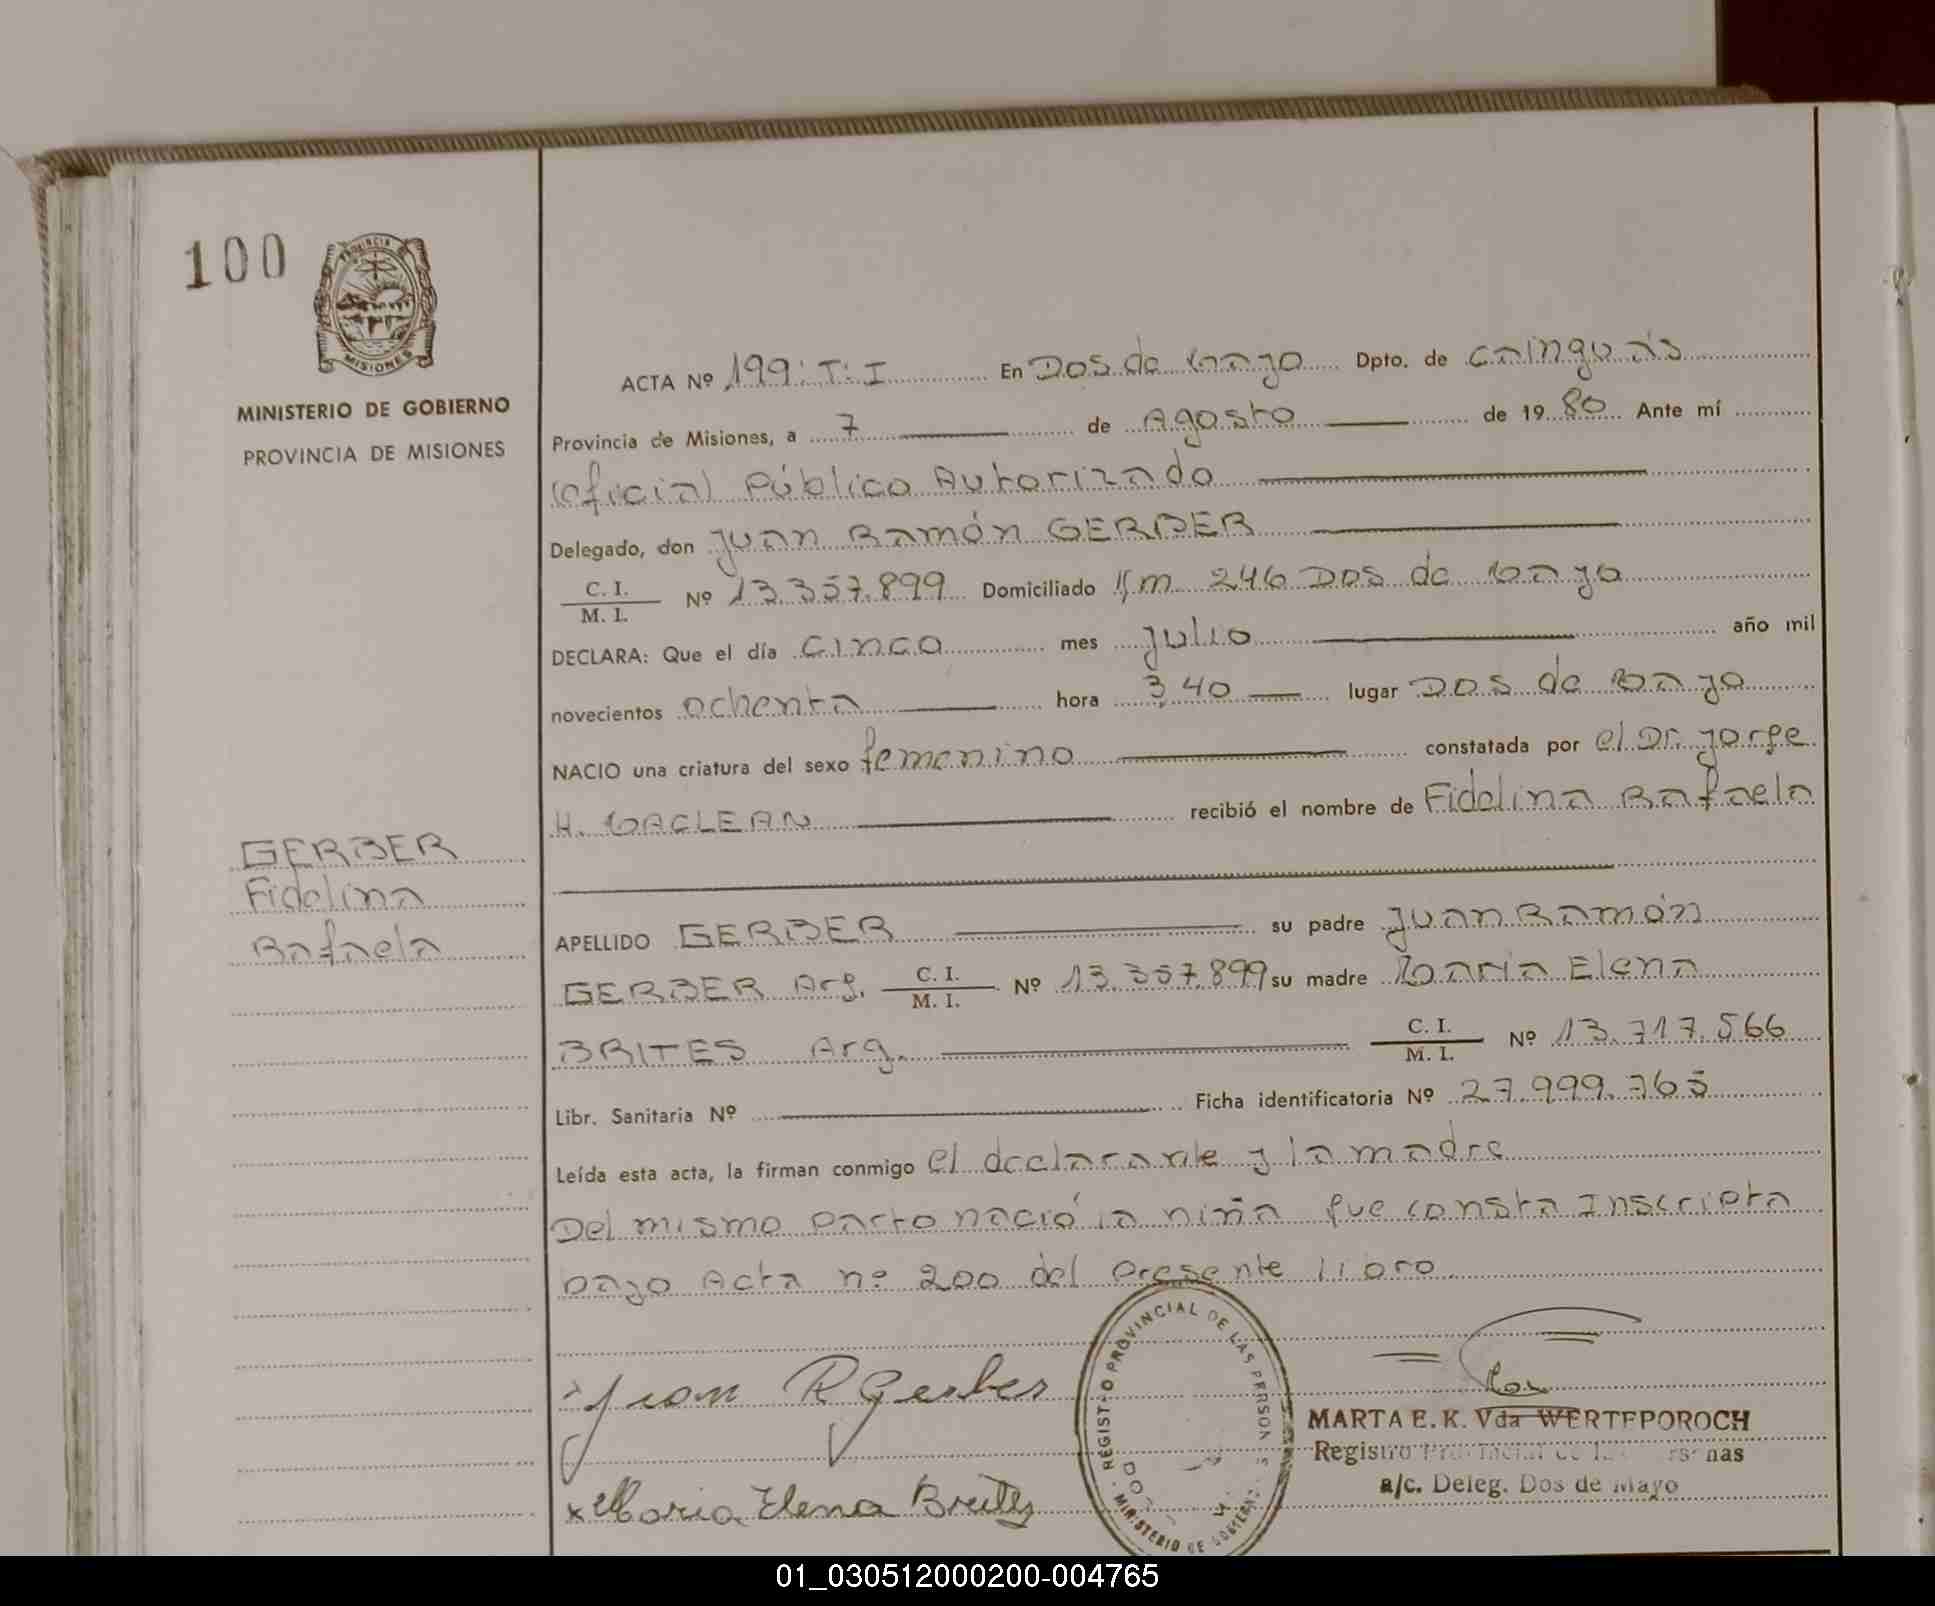 100
PROVINCIA DE
MISIONES
MINISTERIO DE GOBIERNO
PROVINCIA DE MISIONES
ACTA Nº 199: T: I En Dos de Mayo Dpto. de Cainguás
Provincia de Misiones, a 7 de Agosto de 1980 Ante mí
(Oficial Público Autorizado
Delegado, don Juan Ramón GERBER
C. I.
M. I. Nº 13.357.899 Domiciliado Km 246 Dos de Mayo
DECLARA: Que el día cinco mes Julio año mil
novecientos ochenta hora 3,40 lugar Dos de Mayo
NACIO una criatura del sexo femenino constatada por el Dr. Jorge
H. MACLEAN recibió el nombre de Fidelina Rafaela
GERBER
Fidelina
Rafaela
APELLIDO GERBER su padre Juan Ramón
GERBER Arg. C. I.
M. I. Nº 13.357.899 su madre Maria Elena
BRITES Arg. C. I.
M. I. Nº 13.717.566
Libr. Sanitaria Nº Ficha identificatoria Nº 27.999.765
Leída esta acta, la firman conmigo el declarante y la madre
Del mismo parto nació la niña que consta Inscripta
bajo Acta nº 200 del presente libro
Juan R Gerber
x Maria Elena Brites
REGISTRO PROVINCIAL DE LAS PERSONAS
MINISTERIO DE GOBIERNO
MARTA E. K. Vda WERTEPOROCH
Registro Provincial de las Personas
a/c. Deleg. Dos de Mayo
01_030512000200-004765